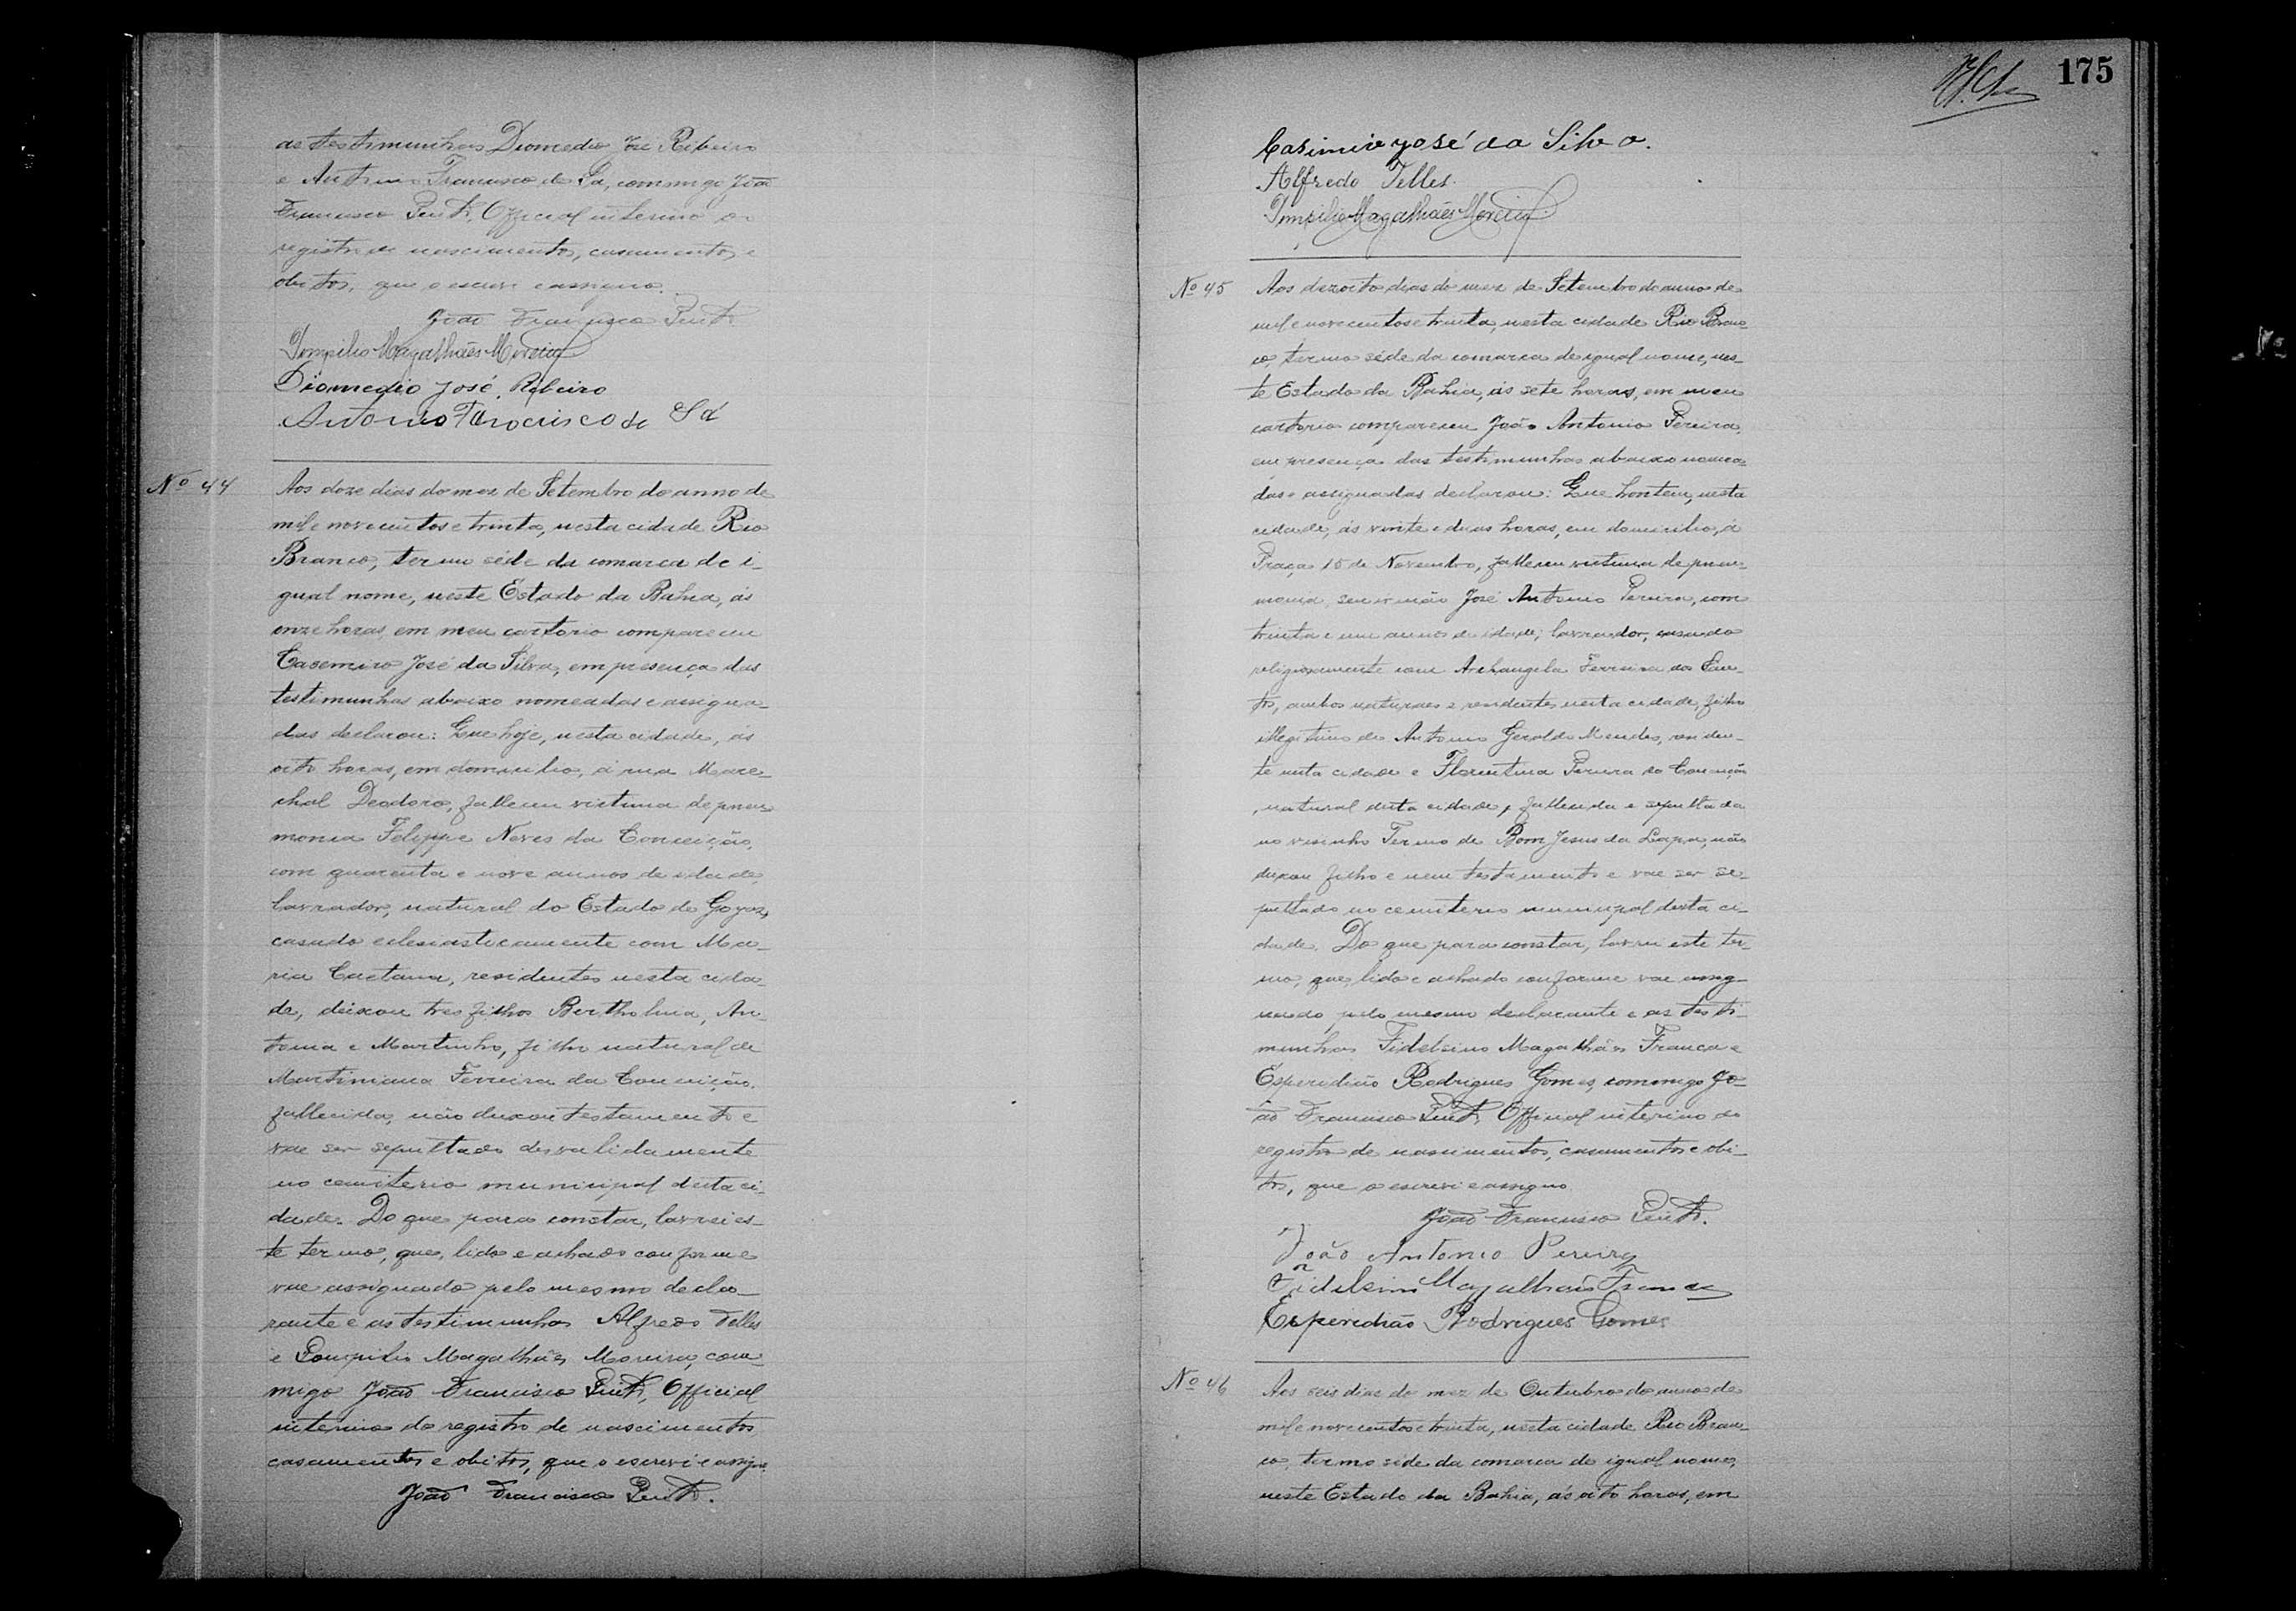 as testimunhas Diomedio José Ribeiro
e Antonio Francisco de Sá, commigo João
Francisco Official interino do
registro de nascimentos, casamentos e
obitos, que o escrevi e assigno.
João Francisco
Pompilio Magalhães Moreira
Diomedio José Ribeiro
Antonio Francisco de Sá
Nº 44
Aos doze dias do mez de Setembro do anno de
mil e novecentos e trinta, nesta cidade Rio
Branco, termo séde da comarca de i-
gual nome, neste Estado da Bahia, ás
onze horas, em meu cartorio compareceu
Casemiro José da Silva, em presença das
testimunhas abaixo nomeadas e assigna-
das declarou: Que hoje, nesta cidade, ás
oito horas, em domicilio, á rua Mare-
chal Deodoro, falleceu victima de pneu-
monia Felippe Neves da Conceição,
com quarenta e nove annos de idade,
lavrador, natural do Estado de Goyaz,
casado eclesiasticamente com Ma-
ria Caetana, residentes nesta cida-
de, deixou tres filhos Bertholina, An-
tonia e Martinho, filho natural de
Martiniana Ferreira da Conceição,
fallecida, não deixou testamento e
vae ser sepultado desvalidamente
no cemiterio municipal desta ci-
dade. Do que para constar, lavrei es-
te termo, que, lido e achado conforme
vae assignado pelo mesmo decla-
rante e as testimunhas Alfredo Telles
e Pompilio Magalhães Moreira, com-
migo João Francisco Official
interino do registro de nascimentos
casamentos e obitos, que o escrevi e assigno.
João Francisco
175
Casimiro José da Silva.
Alfredo Telles.
Pompilio Magalhães Moreira
Nº 45
Aos dezoito dias do mez de Setembro do anno de
mil e novecentos e trinta, nesta cidade Rio Bran-
co, termo séde da comarca de igual nome, nes-
te Estado da Bahia, ás sete horas, em meu
cartorio compareceu João Antonio Pereira,
em presença das testimunhas abaixo nomea-
das e assignadas declarou: Que hontem, nesta
cidade, ás vinte e duas horas, em domicilio, á
Praça 15 de Novembro, falleceu victima de pneu-
monia, seu irmão José Antonio Pereira, com
trinta e um annos de idade, lavrador, casado
religiosamente com Archangela Ferreira dos San-
tos, ambos naturaes e residentes nesta cidade, filho
illegitimo de Antonio Geraldo Mendes, residen-
te nesta cidade e Florentina Pereira da Conceição
, natural desta cidade, fallecida e sepultada
no visinho Termo de Bom Jesus da Lapa, não
deixou filho e nem testamento e vae ser se-
pultado no cemiterio municipal desta ci-
dade. Do que para constar, lavrei este ter-
mo, que, lido e achado conforme vae assig-
nado pelo mesmo declarante e as testi-
munhas Fidelsino Magalhães Franca e
Esperidião Rodrigues Gomes, commigo Jo-
ão Francisco Official interino do
registro de nascimentos, casamentos e obi-
tos, que o escrevi e assigno.
João Francisco
João Antonio Pereira
Fidelsino Magalhães Franca
Esperidião Rodrigues Gomes
Nº 46
Aos seis dias do mez de Outubro do anno de
mil e novecentos e trinta, nesta cidade Rio Bran-
co, termo séde da comarca de igual nome,
neste Estado da Bahia, ás oito horas, em